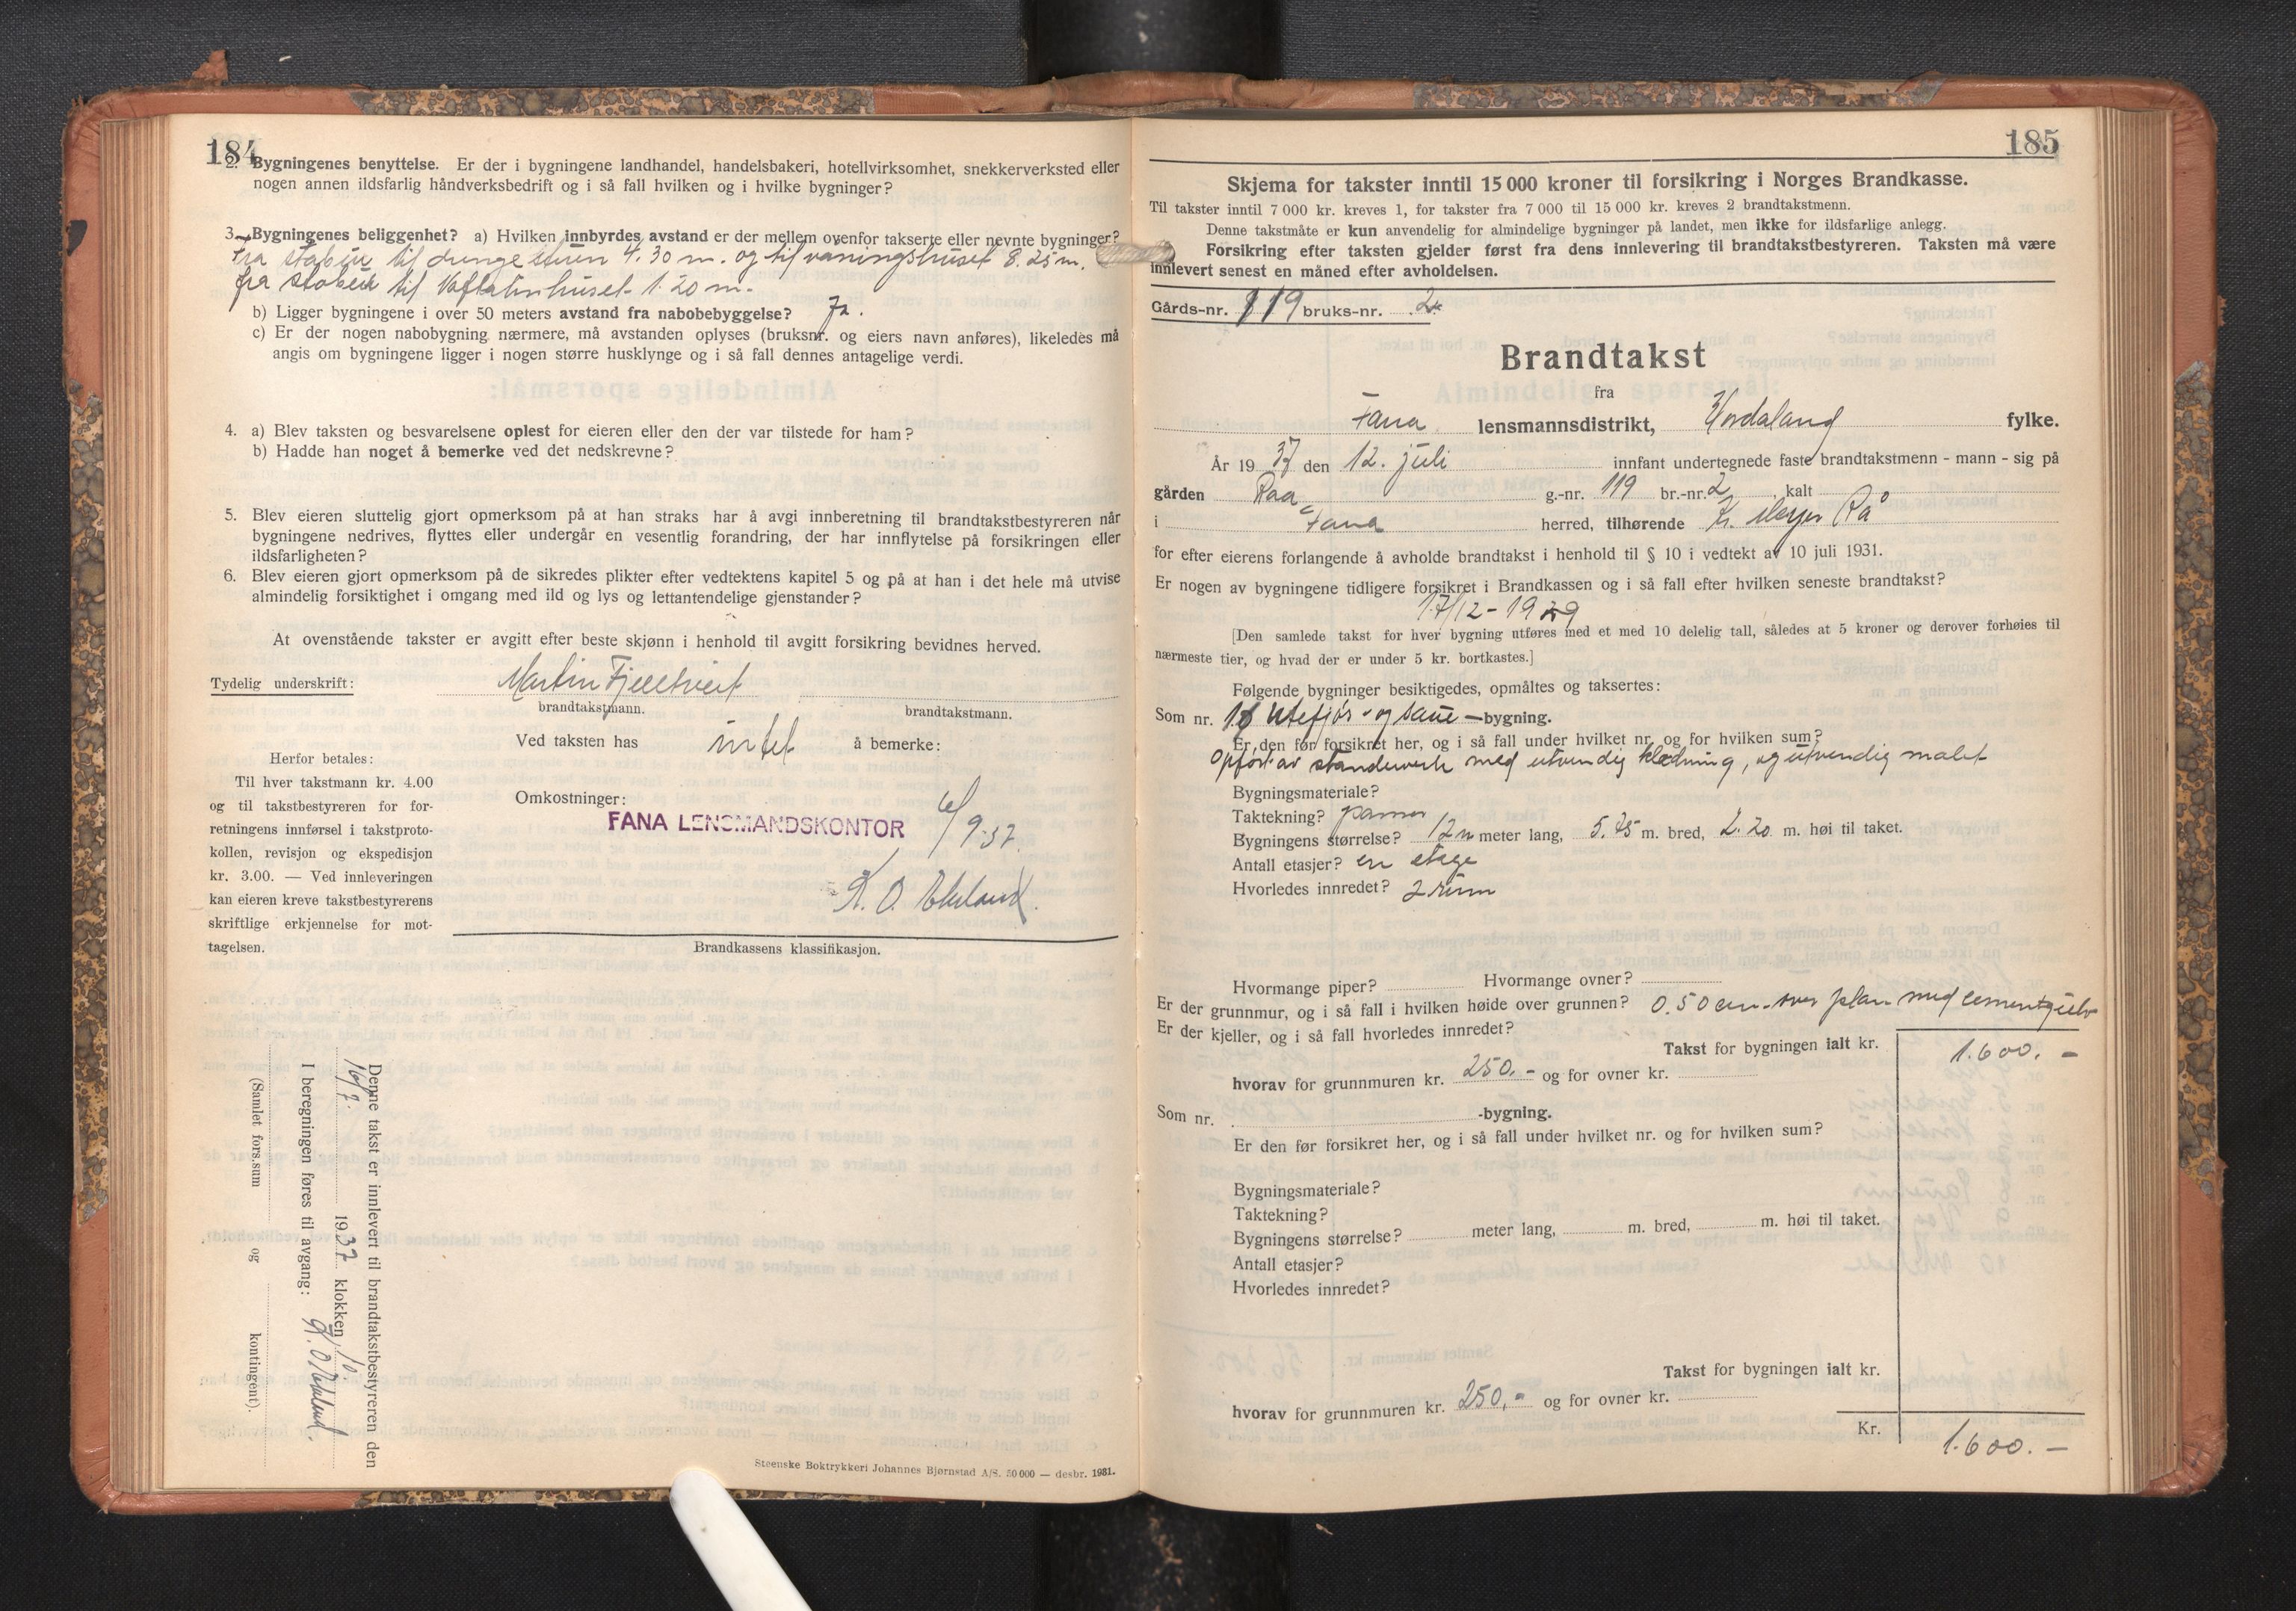 184
2. Bygningenes benyttelse. Er der i bygningene landhandel, handelsbakeri, hotellvirksomhet, snekkerverksted eller
nogen annen ildsfarlig håndverksbedrift og i så fall hvilken og i hvilke bygninger?
3. Bygningenes beliggenhet? a) Hvilken innbyrdes avstand er der mellem ovenfor takserte eller nevnte bygninger?
Fra stabur til 4.30 m. og til våningshuset 8.25 m.
fra stabur til huset 1.20 m.
b) Ligger bygningene i over 50 meters avstand fra nabobebyggelse? Ja.
c) Er der nogen nabobygning nærmere, må avstanden oplyses (bruksnr. og eiers navn anføres), likeledes må
angis om bygningene ligger i nogen større husklynge og i så fall dennes antagelige verdi.
4. a) Blev taksten og besvarelsene oplest for eieren eller den der var tilstede for ham?
b) Hadde han noget å bemerke ved det nedskrevne?
5. Blev eieren sluttelig gjort opmerksom på at han straks har å avgi innberetning til brandtakstbestyreren når
bygningene nedrives, flyttes eller undergår en vesentlig forandring, der har innflytelse på forsikringen eller
ildsfarligheten?
6. Blev eieren gjort opmerksom på de sikredes plikter efter vedtektens kapitel 5 og på at han i det hele må utvise
almindelig forsiktighet i omgang med ild og lys og lettantendelige gjenstander?
At ovenstående takster er avgitt efter beste skjønn i henhold til avgitt forsikring bevidnes herved.
Tydelig underskrift: Martin Fjeldtveit
brandtakstmann. brandtakstmann.
Ved taksten has intet å bemerke:
Herfor betales:
Til hver takstmann kr. 4.00
og til takstbestyreren for for-
retningens innførsel i takstproto-
kollen, revisjon og ekspedisjon
kr. 3.00. — Ved innleveringen
kan eieren kreve takstbestyrerens
skriftlige erkjennelse for mot-
tagelsen.
Omkostninger:
FANA LENSMANDSKONTOR 6/9-37.
K. O.
Brandkassens klassifikasjon.
Denne takst er innlevert til brandtakstbestyreren den
16/7. 1937 klokken 10
I beregningen føres til avgang: K. O.
(Samlet fors.sum og kontingent).
Steenske Boktrykkeri Johannes Bjørnstad A/S. 50 000 — desbr. 1931.
185
Skjema for takster inntil 15 000 kroner til forsikring i Norges Brandkasse.
Til takster inntil 7 000 kr. kreves 1, for takster fra 7 000 til 15 000 kr. kreves 2 brandtakstmenn.
Denne takstmåte er kun anvendelig for almindelige bygninger på landet, men ikke for ildsfarlige anlegg.
Forsikring efter taksten gjelder først fra dens innlevering til brandtakstbestyreren. Taksten må være
innlevert senest en måned efter avholdelsen.
Gårds-nr. 119 bruks-nr. 2
Brandtakst
fra
Fana lensmannsdistrikt, Hordaland fylke.
År 1937 den 12. juli innfant undertegnede faste brandtakstmenn - mann - sig på
gården Raa g.-nr. 119 br.-nr. 2 kalt
i Fana herred, tilhørende K. Rå
for efter eierens forlangende å avholde brandtakst i henhold til § 10 i vedtekt av 10 juli 1931.
Er nogen av bygningene tidligere forsikret i Brandkassen og i så fall efter hvilken seneste brandtakst?
17/12-1929
[Den samlede takst for hver bygning utføres med et med 10 delelig tall, således at 5 kroner og derover forhøies til
nærmeste tier, og hvad der er under 5 kr. bortkastes.]
Følgende bygninger besiktigedes, opmåltes og taksertes:
Som nr. Utefjös- og saue—bygning.
Er den før forsikret her, og i så fall under hvilket nr. og for hvilken sum?
Opført av standerverk med utvendig kledning, og utvendig malet
Bygningsmateriale?
Taktekning? panner
Bygningens størrelse? 12 m meter lang, 5.75 m. bred, 2.20 m. høi til taket.
Antall etasjer? en etage
Hvorledes innredet? 2 rum
Hvormange piper? Hvormange ovner?
Er der grunnmur, og i så fall i hvilken høide over grunnen? 0.50 cm. over plan med cementgulv
Er der kjeller, og i så fall hvorledes innredet?
Takst for bygningen ialt kr. 1.600.-
hvorav for grunnmuren kr. 250.- og for ovner kr.
Som nr. -bygning.
Er den før forsikret her, og i så fall under hvilket nr. og for hvilken sum?
Bygningsmateriale?
Taktekning?
Bygningens størrelse? meter lang, m. bred, m. høi til taket.
Antall etasjer?
Hvorledes innredet?
Takst for bygningen ialt kr.
hvorav for grunnmuren kr. 250,- og for ovner kr.
Kr. 1.600.-